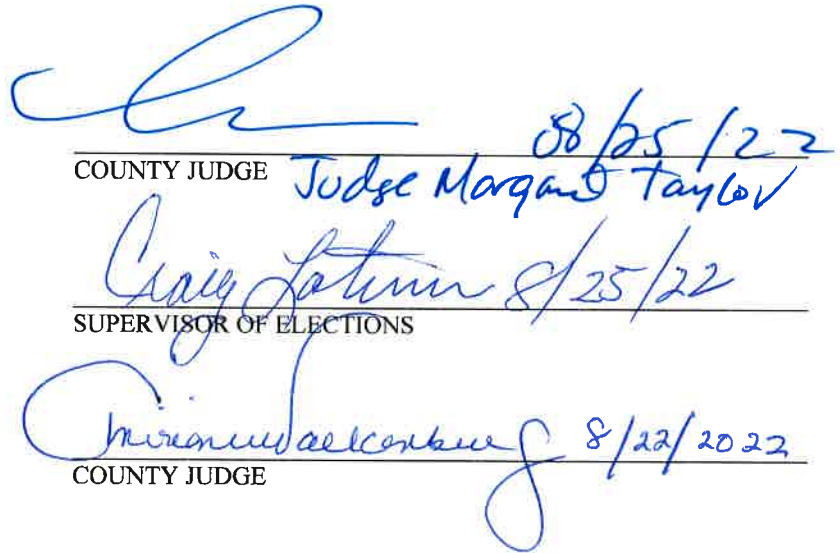 08/25/22
COUNTY JUDGE Judge Margaret Taylor
Craig Latimer 8/25/22
SUPERVISOR OF ELECTIONS
8/22/2022
COUNTY JUDGE